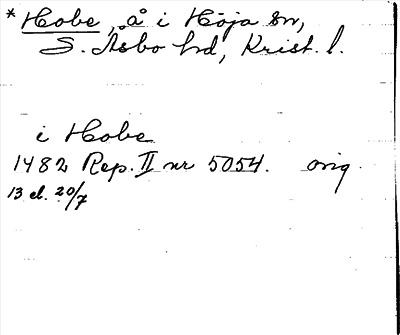 * Hobe, å i Höja sn,
S. Åsbo hd, Krist. l.
i Hobe
1482 Rep. II nr 5054. orig.
13 el. 20/7